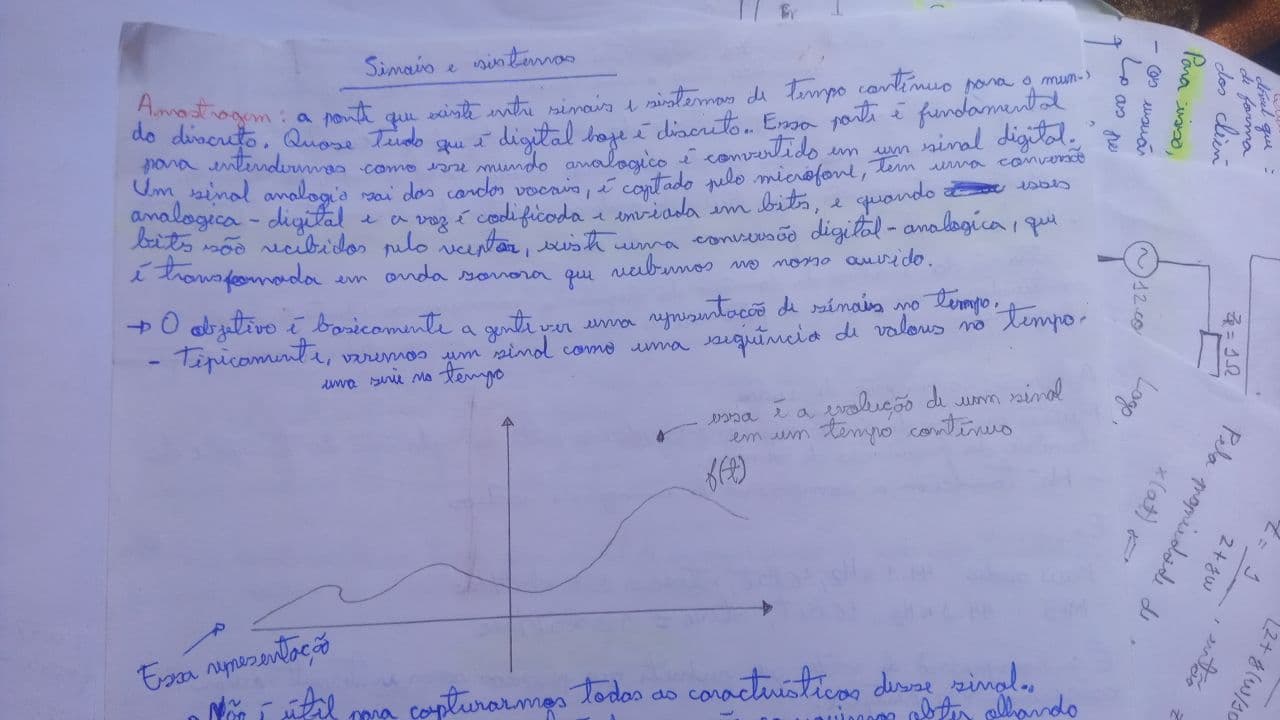 Sinais e sistemas
Amostragem: a ponte que existe entre sinais e sistemas de tempo contínuo para o mun-
do discreto. Quase tudo que é digital hoje é discreto. Essa parte é fundamental
para entendermos como esse mundo analogico é convertido em um sinal digital.
Um sinal analogio sai das cordas vocais, é captado pelo microfone, tem uma conversão
analogica-digital e a voz é codificada e enviada em bits, e quando esses
bits são recebidos pelo receptor, existe uma conversão digital-analogica, que
é transformada em onda sonora que recebemos no nosso ouvido.
→ O objetivo é basicamente a gente ver uma representação de sinais no tempo.
- Tipicamente, veremos um sinal como uma sequência de valores no tempo.
uma serie no tempo
essa é a evolução de um sinal
em um tempo contínuo
f(t)
Essa representação
Não é útil para capturarmos todas as características desse sinal.
obter olhando
Para isso,
dos clien
12cos
Z = 1Ω
Logo,
Pela propriedade d
x(at) ←
2+8w